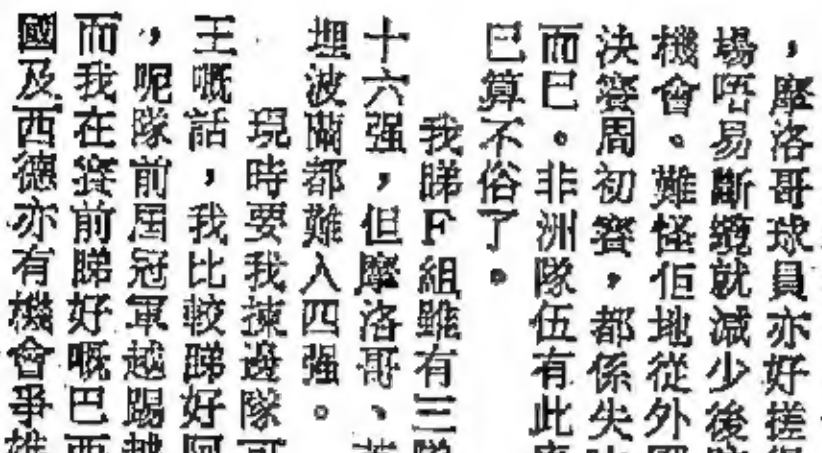 ，摩洛哥球員亦好搓
場唔易斷纜就減少後
機會。難怪佢地從外
決賽周初賽，都係失
而巳。非洲隊伍有此
巳算不俗了。
我睇F組雖有三
十六强，但摩洛哥、
埋波蘭都難入四强。
現時要我揀邊隊
王嘅話，我比較睇好
，呢隊前屆冠軍越踢
而我在賽前睇好嘅巴西
國及西德亦有機會爭